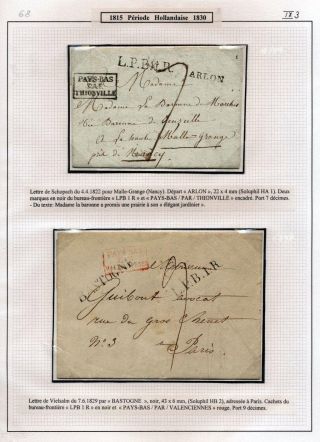 68
1815 Période Hollandaise 1830
IX 3
L.P.B.1.R.
ARLON
PAYS-BAS
PAR
THIONVILLE
Madame
Madame La Baronne de
née Baronne de
à la haute Malle-grange
près de Nancy
Lettre de Schupach du 4.4.1822 pour Malle-Grange (Nancy). Départ « ARLON », 22 x 4 mm (Soluphil HA 1). Deux
marques en noir du bureau-frontière « LPB 1 R » et « PAYS-BAS / PAR / THIONVILLE » encadré. Port 7 décimes.
- Du texte: Madame la baronne a promis une prairie à son « élégant jardinier ».
PAYS-BAS
BASTOGNE
L.P.B.1.R
Monsieur
Guibout avocat
rue du gros Chenet
N° 3
à Paris
Lettre de Vielsalm du 7.6.1829 par « BASTOGNE », noir, 43 x 6 mm, (Soluphil HB 2), adressée à Paris. Cachets du
bureau-frontière « LPB 1 R » en noir et « PAYS-BAS / PAR / VALENCIENNES » rouge. Port 9 décimes.